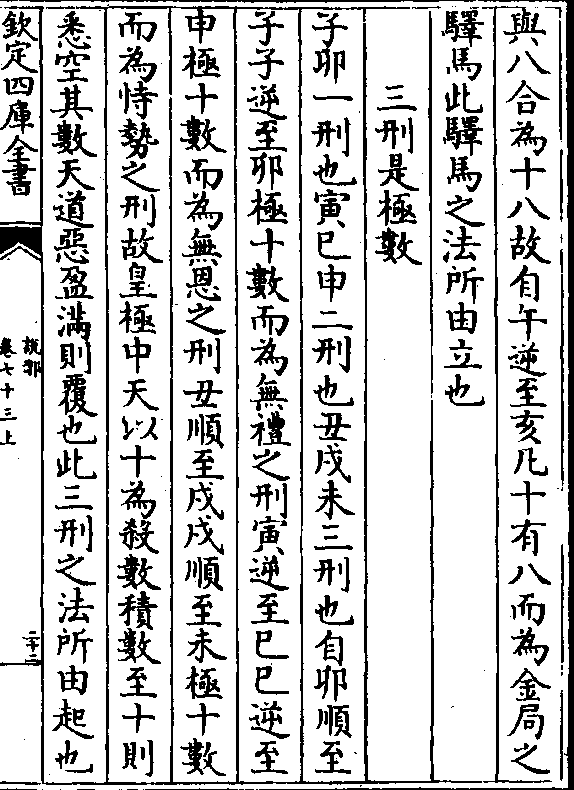 與八合為十八故自午逆至亥凡十有八而為金局之
驛馬此驛馬之法所由立也
三刑是極數
子卯一刑也寅巳申二刑也丑戌未三刑也自卯順至
子子逆至卯極十數而為無禮之刑寅逆至巳巳逆至
申極十數而為無恩之刑丑順至戌戌順至未極十數
而為恃勢之刑故皇極中天以十為殺數積數至十則
悉空其數天道惡盈滿則覆也此三刑之法所由起也
欽定四庫全書
說郛
卷七十三上
二十二